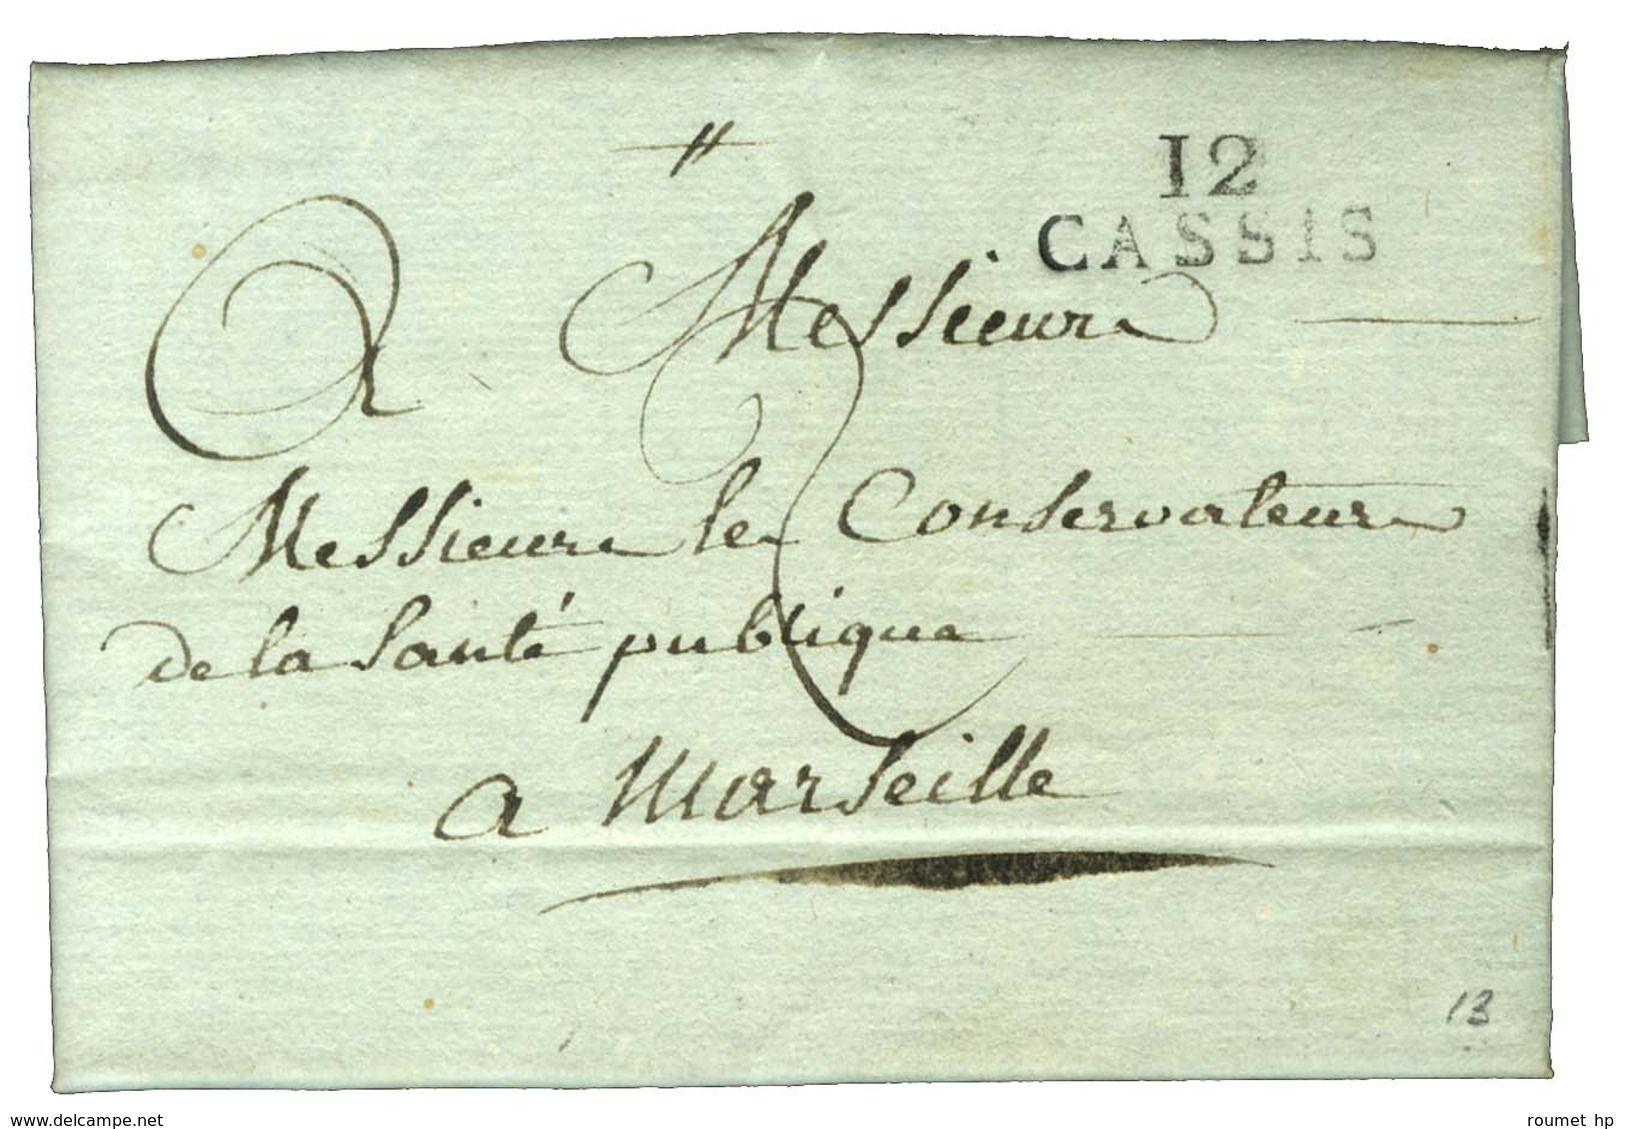 12
CASSIS
A Messieurs
Messieurs les Conservateurs
de la Santé publique
a Marseille
13
www.delcampe.net
roumet hp